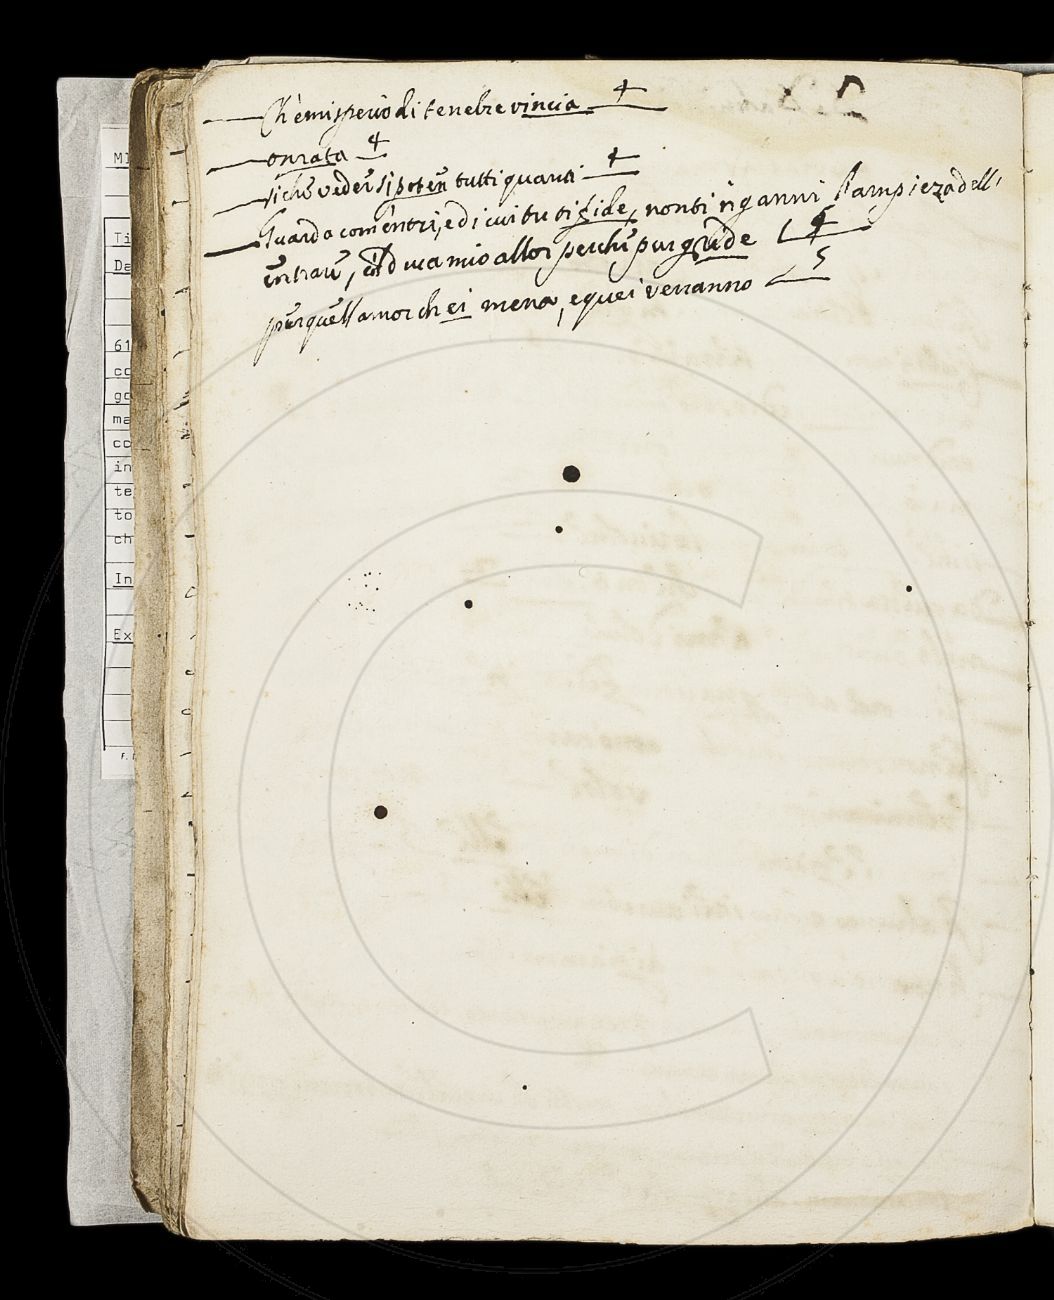 Ch'emisperio di tenebre vincia 4
onrata 4
siche veder si poten tutti quanti 4
Guarda com'entri, e di cui tu ti fide, non ti inganni l'ampieza dell'
entrare, e'l duca mio a llor perche pur gride 4
per quell amor ch ei mena, e quei verranno 5
MI
Ti
Da
61
co
go
ma
co
in
te
to
ch
In
Ex